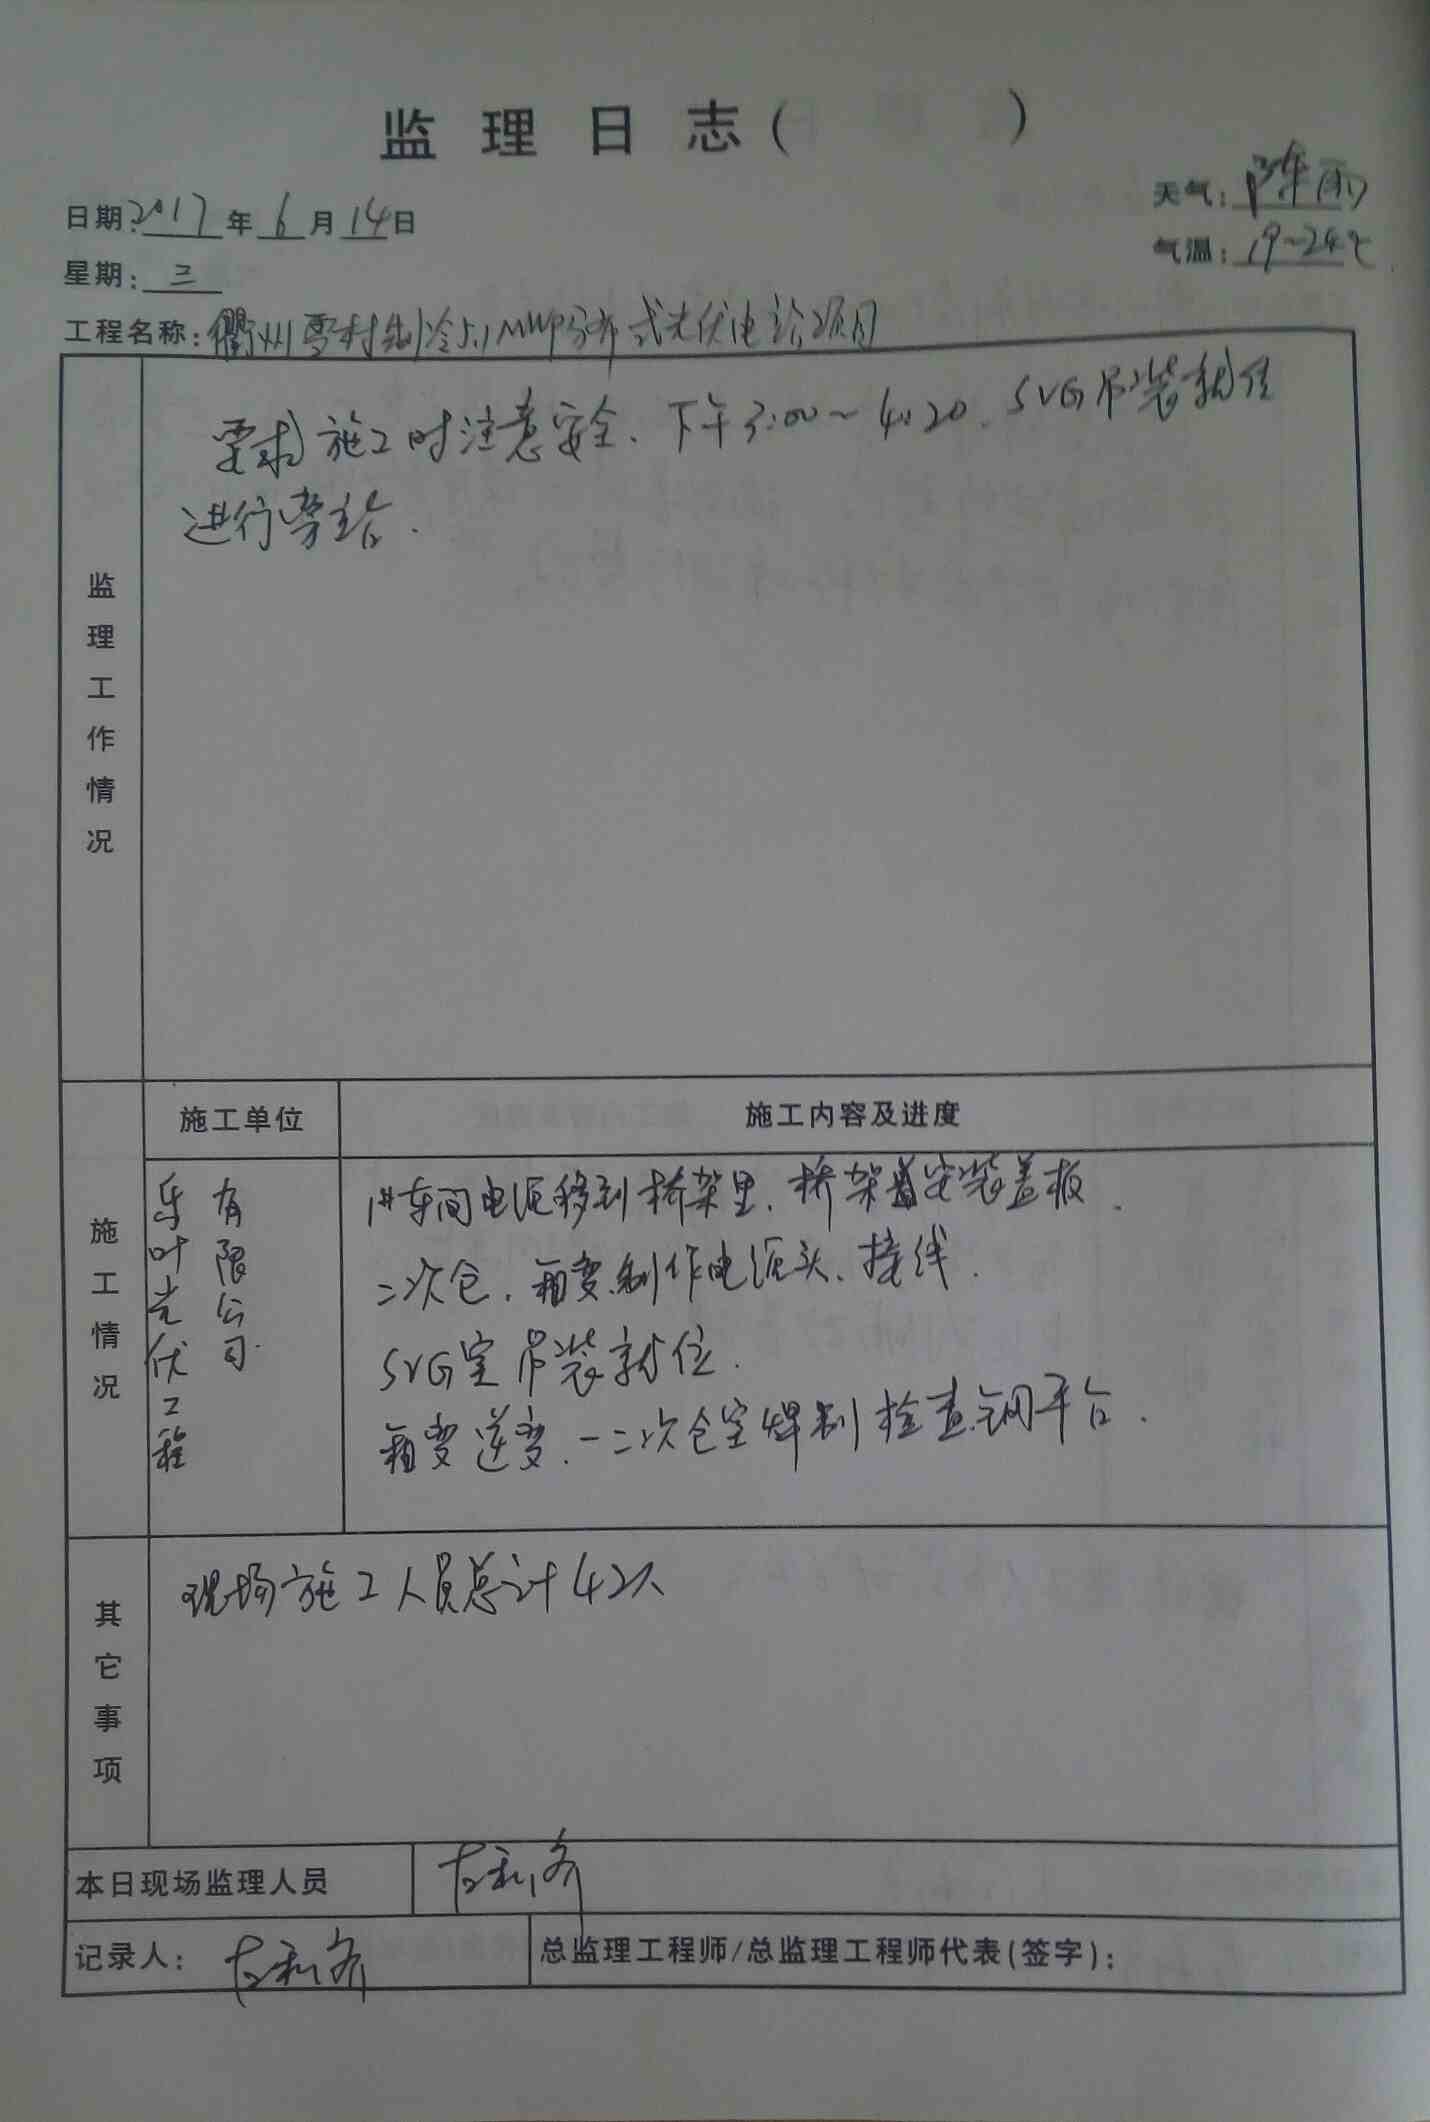 监理日志( )
天气: 阵雨
日期: 2017年6月14日
气温: 19~24℃
星期: 三
工程名称: 衢州雪村制冷5.1MWP分布式光伏电站项目
监理工作情况
要求施工时注意安全、下午3:00~4:20、SVG吊装就位
进行旁站.
施工单位 施工内容及进度
施工情况
乐叶光伏工程
有限公司.
车间电缆移到桥架里、桥架安装盖板.
二次仓、箱变制作电缆头、接线.
SVG室吊装就位.
箱变逆变、一二次仓室焊制检查钢平台.
其它事项
现场施工人员总计42人
本日现场监理人员
记录人:
总监理工程师/总监理工程师代表(签字):